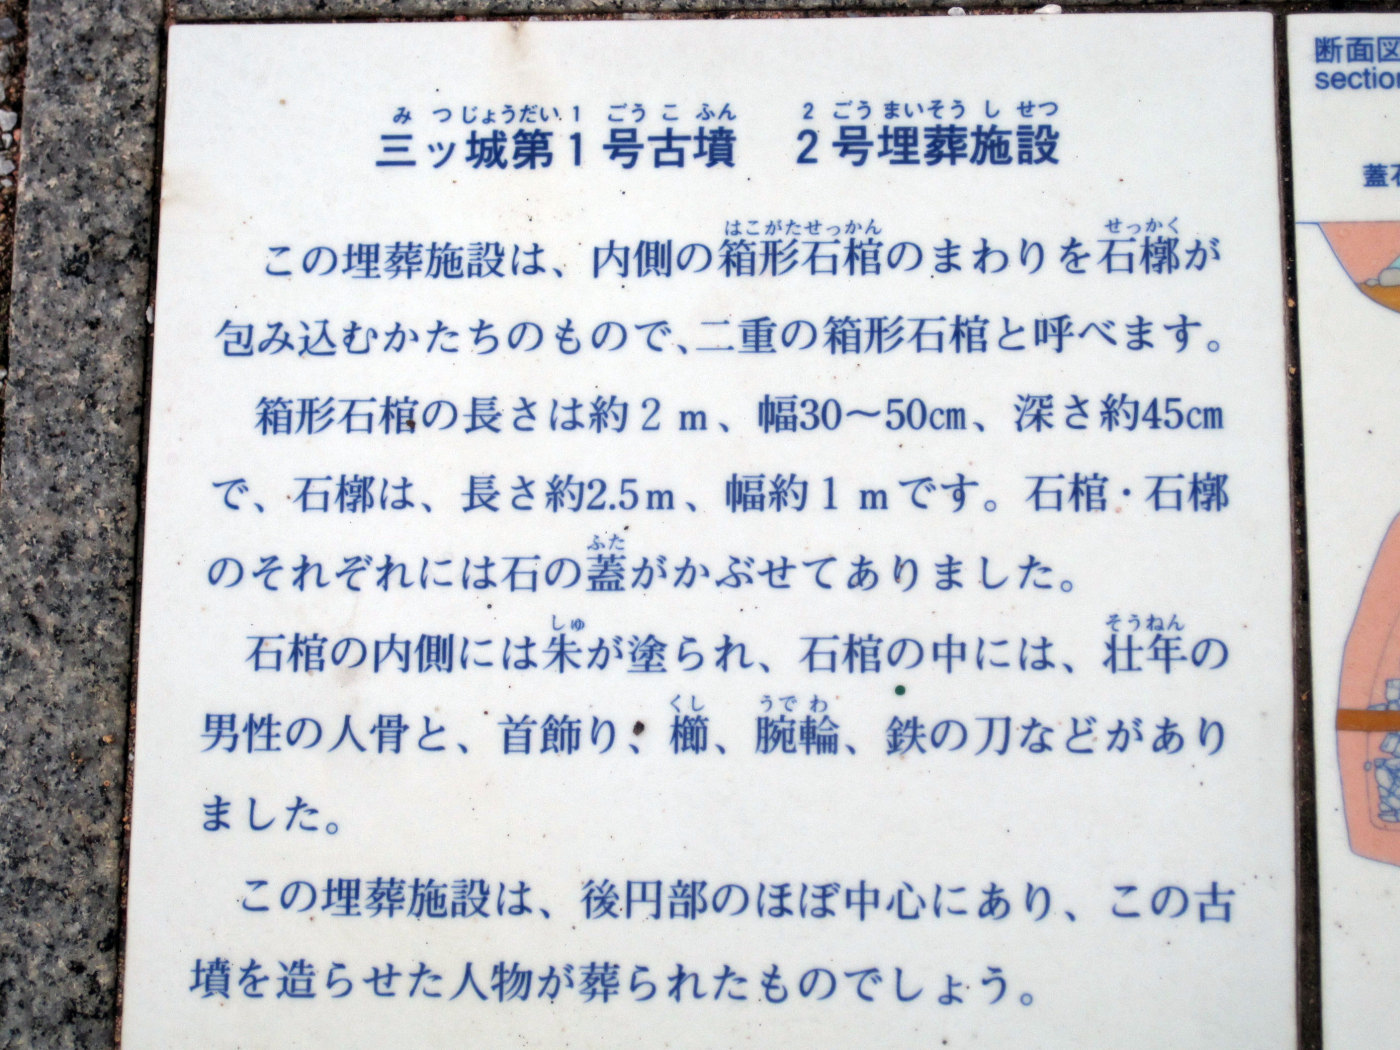 三ッ城第1号古墳　2号埋葬施設
みつじょうだい1ごうこふん　2ごうまいそうしせつ
この埋葬施設は、内側の箱形石棺のまわりを石槨が
はこがたせっかん　せっかく
包み込むかたちのもので、二重の箱形石棺と呼べます。
箱形石棺の長さは約2m、幅30〜50㎝、深さ約45㎝
で、石槨は、長さ約2.5m、幅約1mです。石棺・石槨
のそれぞれには石の蓋がかぶせてありました。
ふた
石棺の内側には朱が塗られ、石棺の中には、壮年の
しゅ　そうねん
男性の人骨と、首飾り、櫛、腕輪、鉄の刀などがあり
くし　うでわ
ました。
この埋葬施設は、後円部のほぼ中心にあり、この古
墳を造らせた人物が葬られたものでしょう。
断面図
section
蓋石